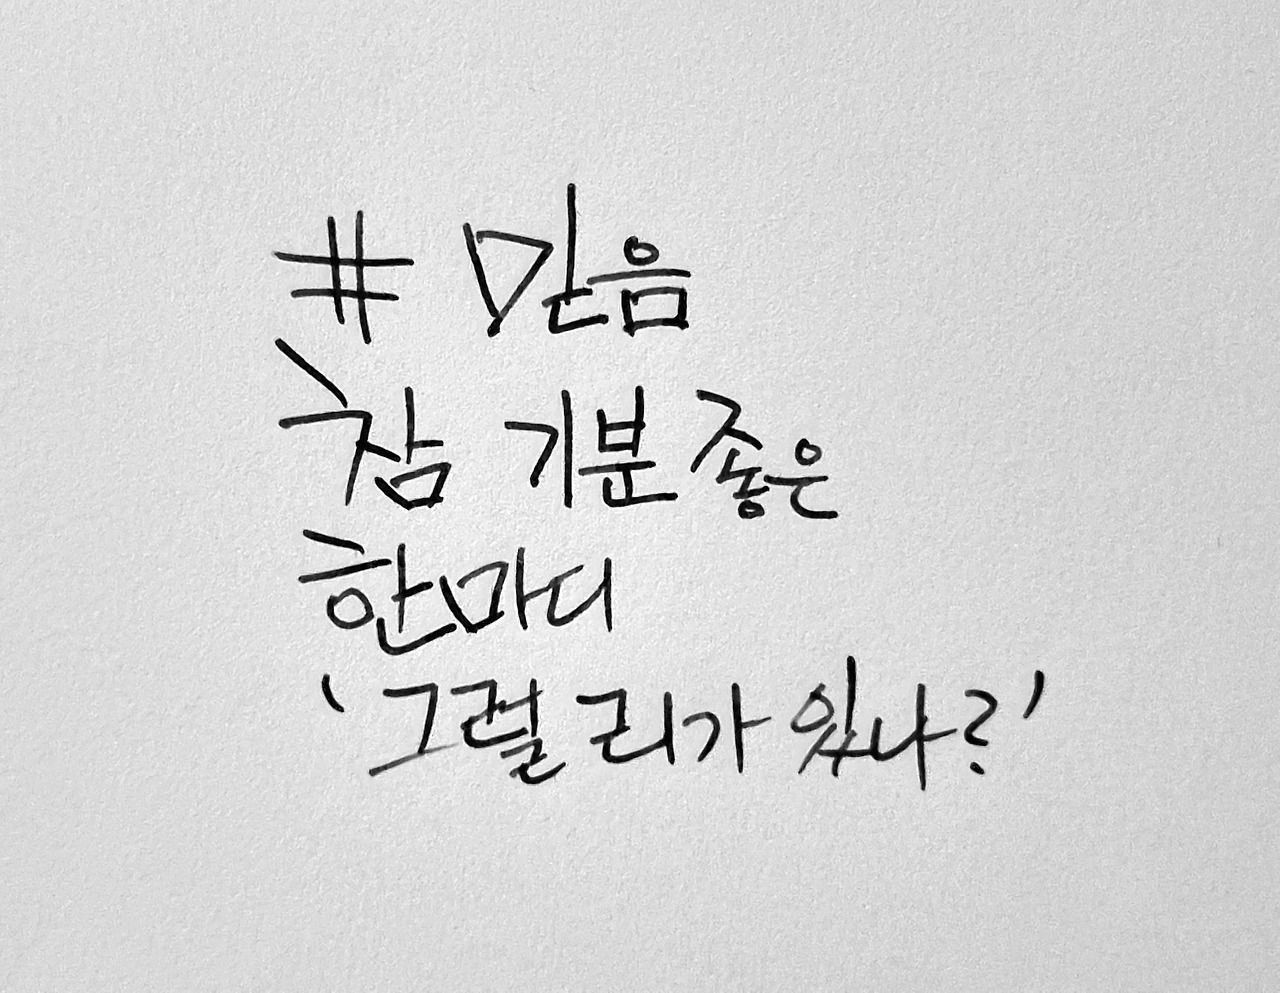 # 믿음
참 기분 좋은
한마디
'그럴 리가 있나?'